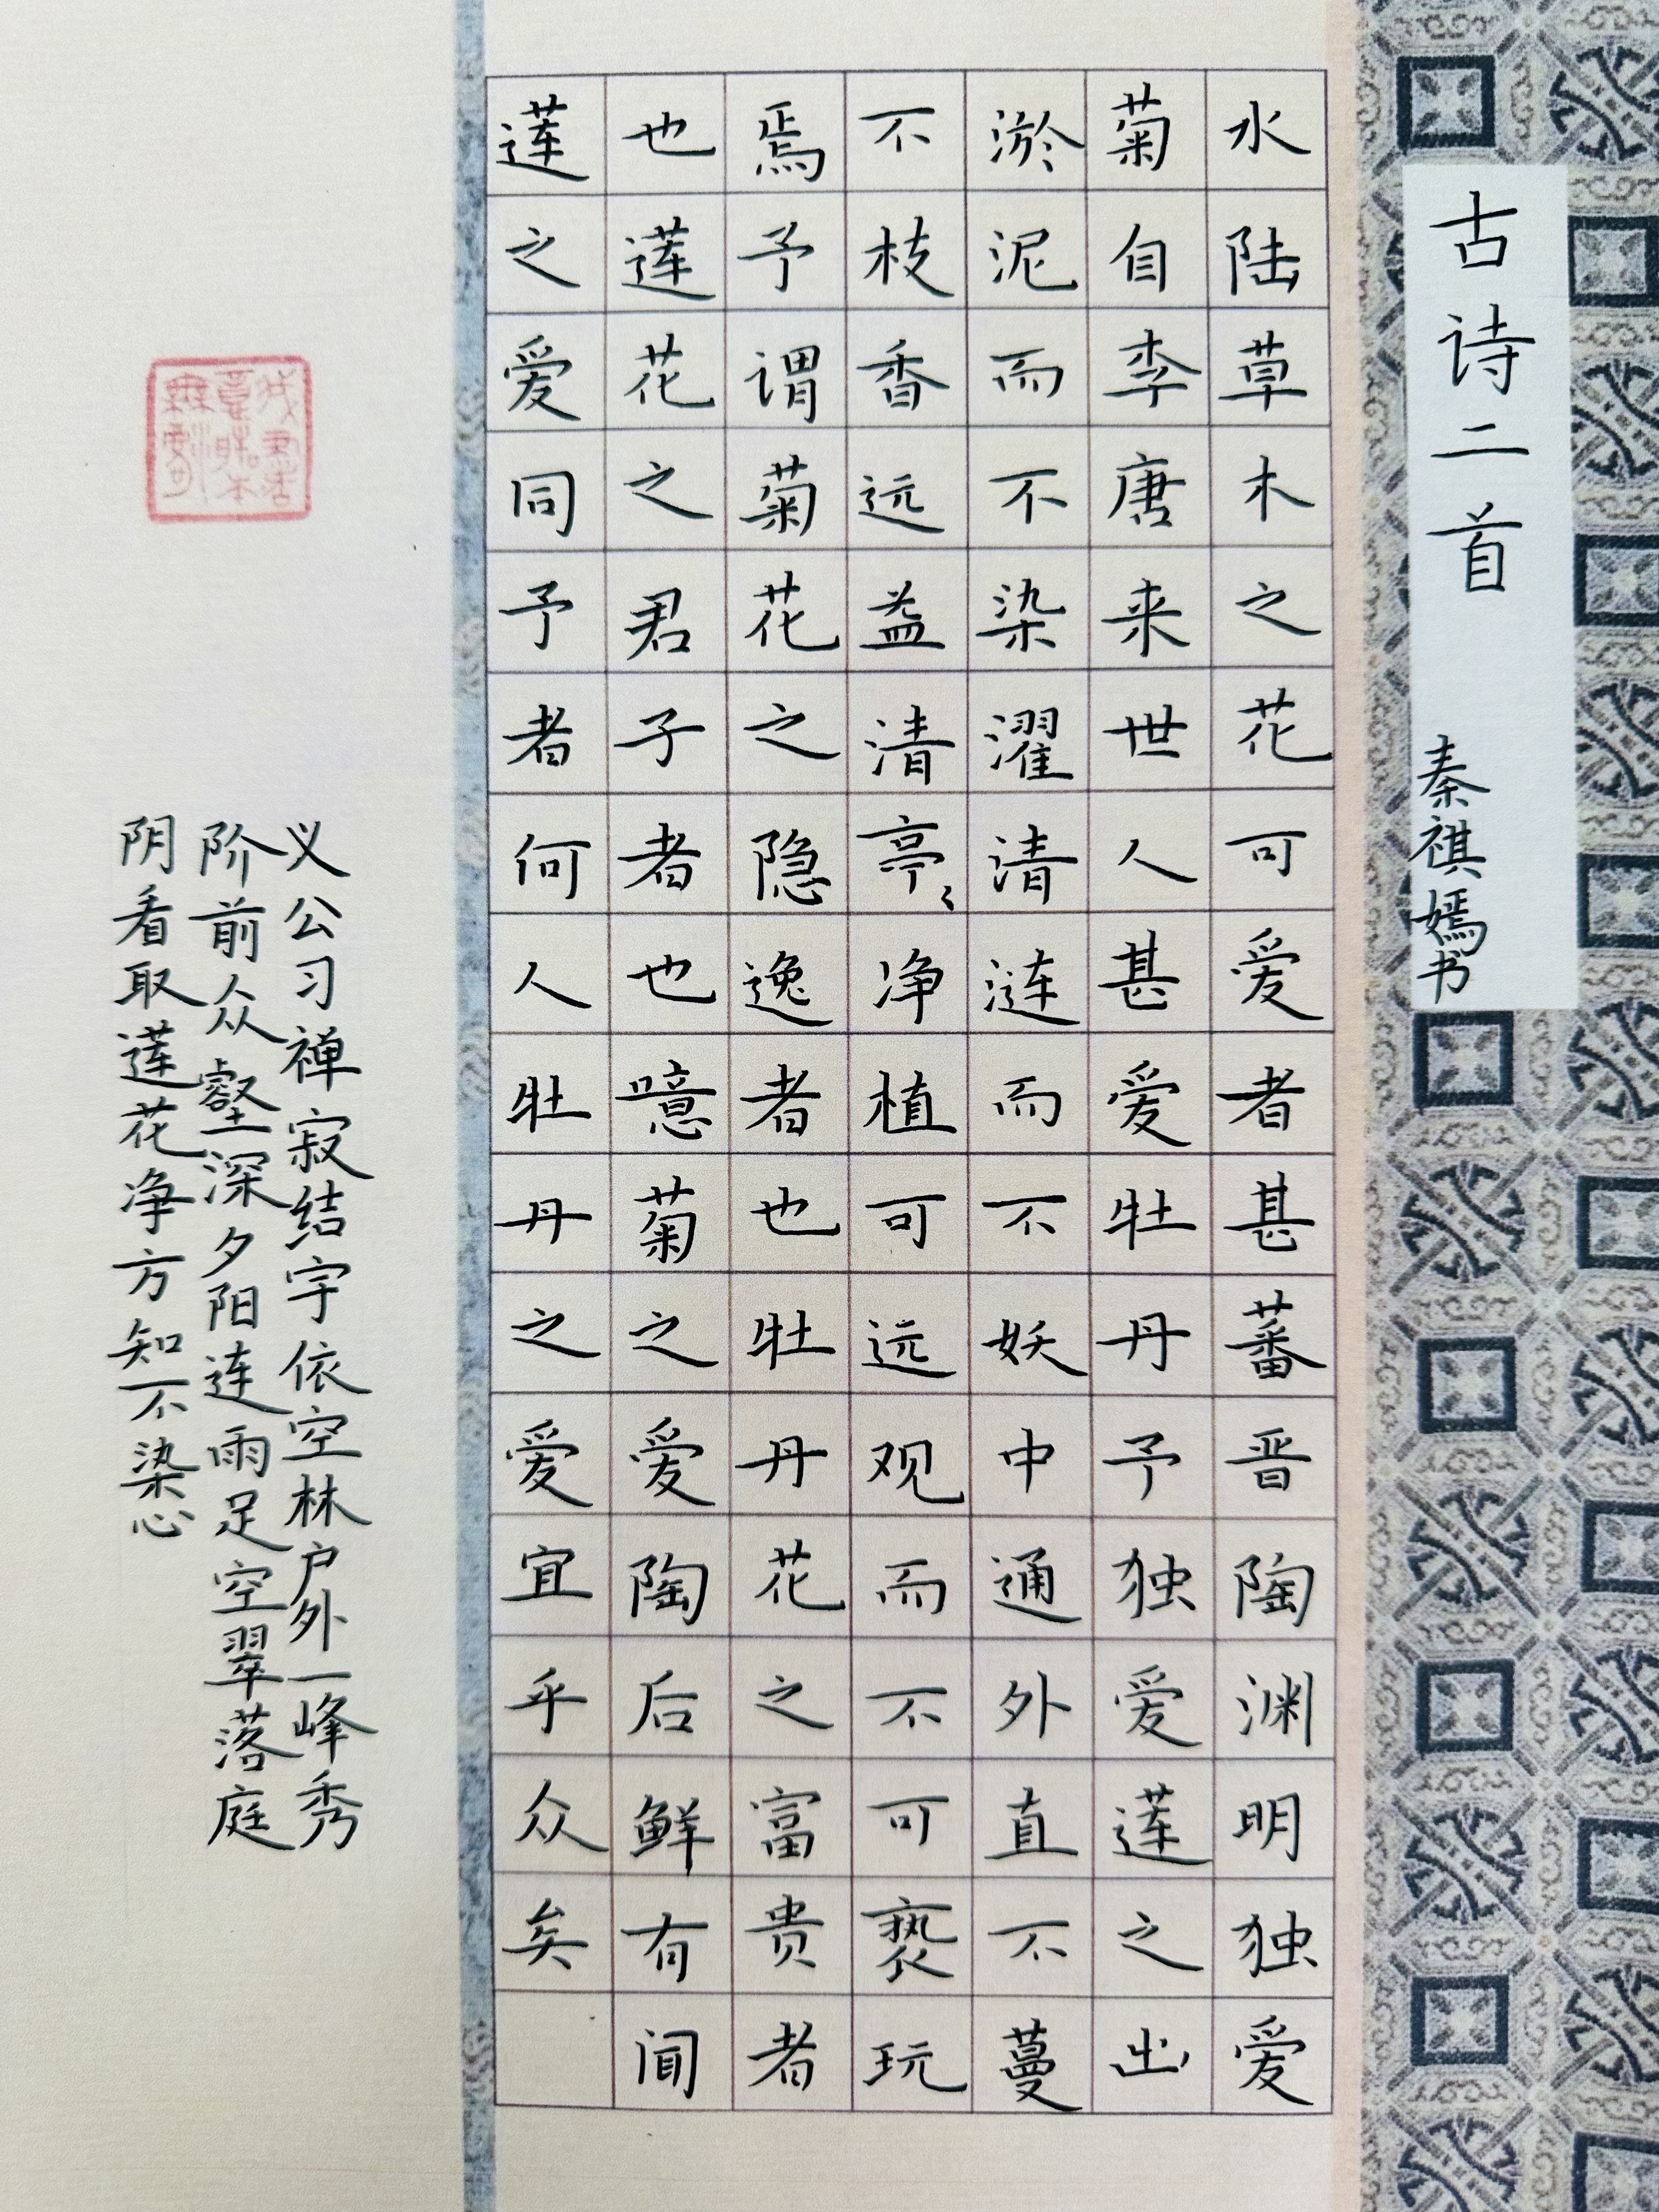 古诗二首
秦祺嫣书
水陆草木之花可爱者甚蕃晋陶渊明独爱
菊自李唐来世人甚爱牡丹予独爱莲之出
淤泥而不染濯清涟而不妖中通外直不蔓
不枝香远益清亭〻净植可远观而不可亵玩
焉予谓菊花之隐逸者也牡丹花之富贵者
也莲花之君子者也噫菊之爱陶后鲜有闻
莲之爱同予者何人牡丹之爱宜乎众矣
义公习禅寂结宇依空林户外一峰秀
阶前众壑深夕阳连雨足空翠落庭
阴看取莲花净方知不染心